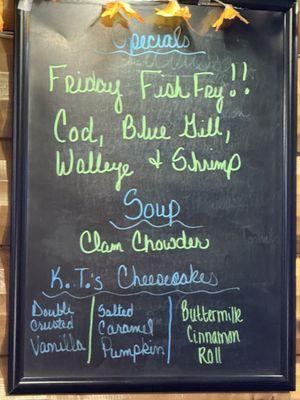 Specials
Friday Fish Fry!!
Cod, Blue Gill,
Walleye & Shrimp
Soup
Clam Chowder
K.T.'s Cheesecakes
Double
Crusted
Vanilla
Salted
Caramel
Pumpkin
Buttermilk
Cinnamon
Roll